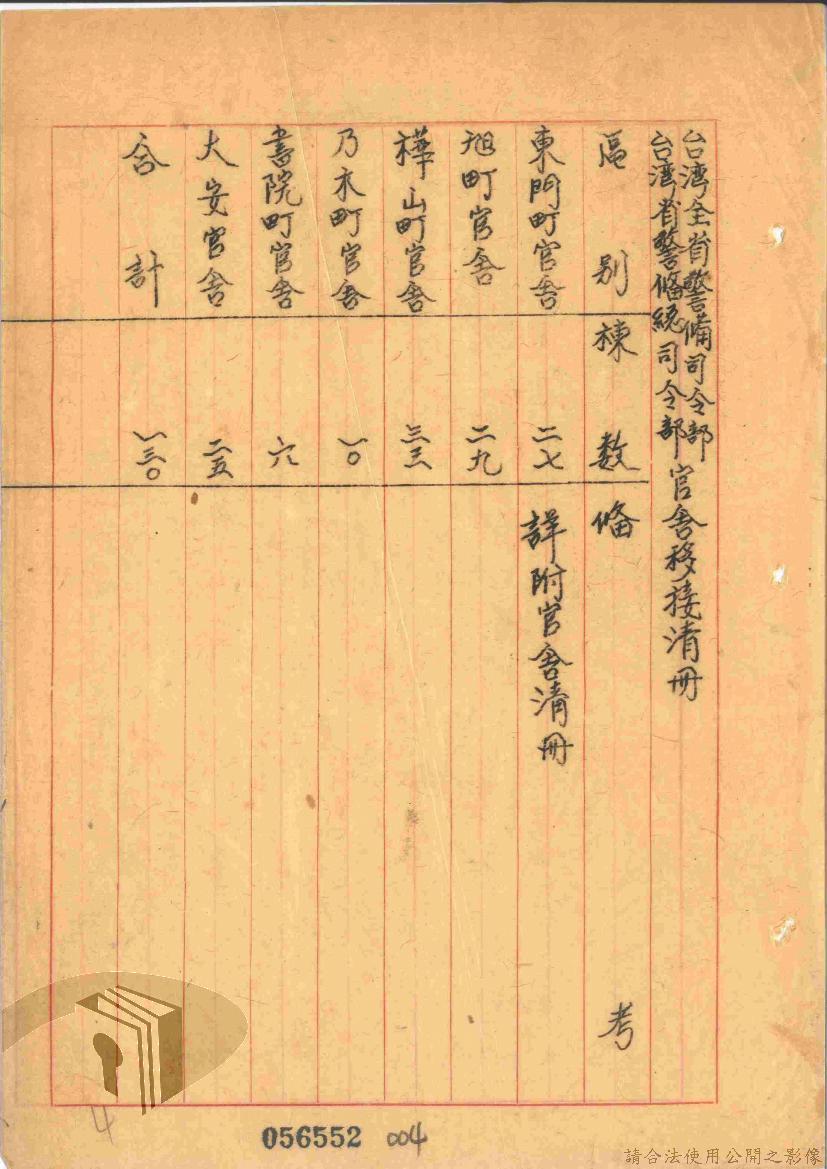 台湾全省警備司令部
台湾省警備總司令部官舍移接清冊
區別 棟數 備考
東門町官舍 二七 詳附官舍清冊
旭町官舍 二九
樺山町官舍 三三
乃木町官舍 一〇
書院町官舍 六
大安官舍 二五
合計 一三〇
056552 004
4
請合法使用公開之影像